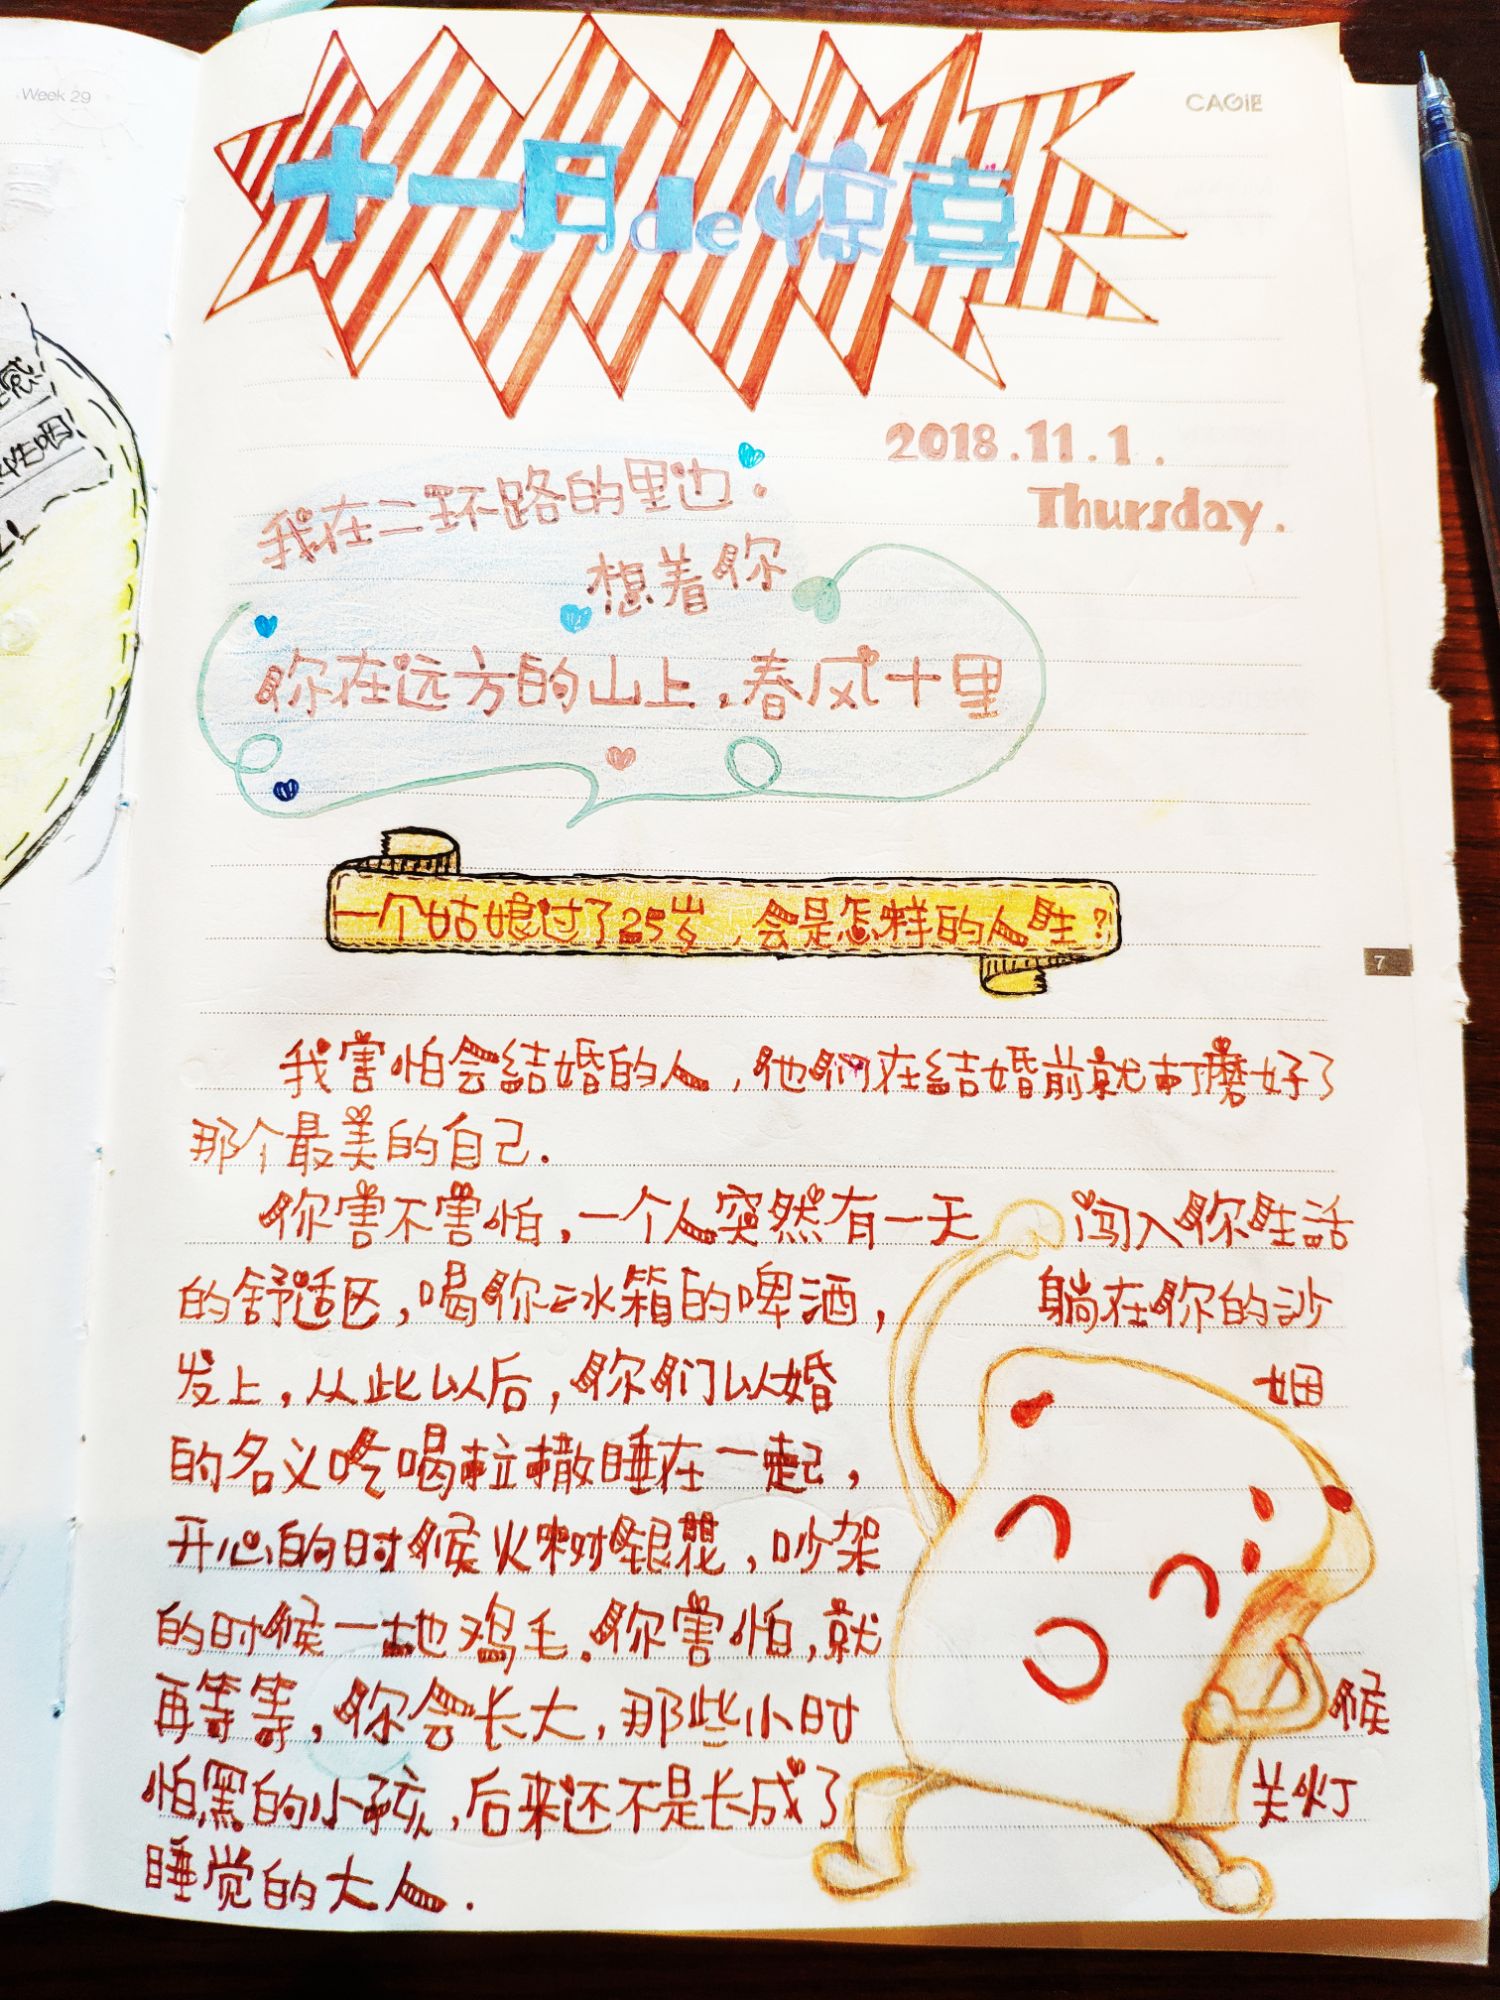 Week 29
CAGIE
十一月de惊喜
2018.11.1.
Thursday.
我在二环路的里边.
想着你
你在远方的山上,春风十里
一个姑娘过了25岁,会是怎样的人生?
7
我害怕会结婚的人,他们在结婚前就打磨好了
那个最美的自己.
你害不害怕,一个人突然有一天 闯入你生活
的舒适区,喝你冰箱的啤酒, 躺在你的沙
发上,从此以后,你们以婚 姻
的名义吃喝拉撒睡在一起,
开心的时候火树银花,吵架
的时候一地鸡毛.你害怕,就
再等等,你会长大,那些小时 候
怕黑的小孩,后来还不是长成了 关灯
睡觉的大人.